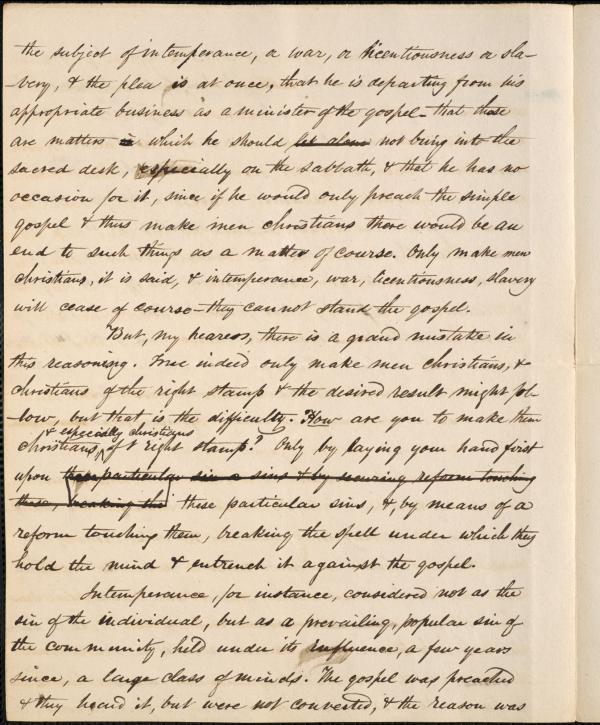 the subject of intemperance, or war, or licentiousness or sla-
-very, & the plea is at once, that he is departing from his
appropriate business as a minister of the gospel - that these
are matters in which he should let alone not bring into the
sacred desk, especially on the sabbath, & that he has no
occasion for it, since if he would only preach the simple
gospel & thus make men christians there would be an
end to such things as a matter of course. Only make men
christians, it is said, & intemperance, war, licentiousness, slavery
will cease of course - they cannot stand the gospel.
But, my hearers, there is a grand mistake in
this reasoning. True indeed only make men christians, &
christians of the right stamp & the desired result might fol-
-low, but that is the difficulty. How are you to make them
& especially christians
christians, of t right stamp? Only by laying your hand first
upon these particular sin or sins & by securing reform touching
these, breaking the these particular sins, &, by means of a
reform touching them, breaking the spell under which they
hold the mind & entrench it against the gospel.
Intemperance, for instance, considered not as the
sin of the individual, but as a prevailing, popular sin of
the community, held under its influence, a few years
since, a large class of minds. The gospel was preached
& they heard it, but were not converted, & the reason was